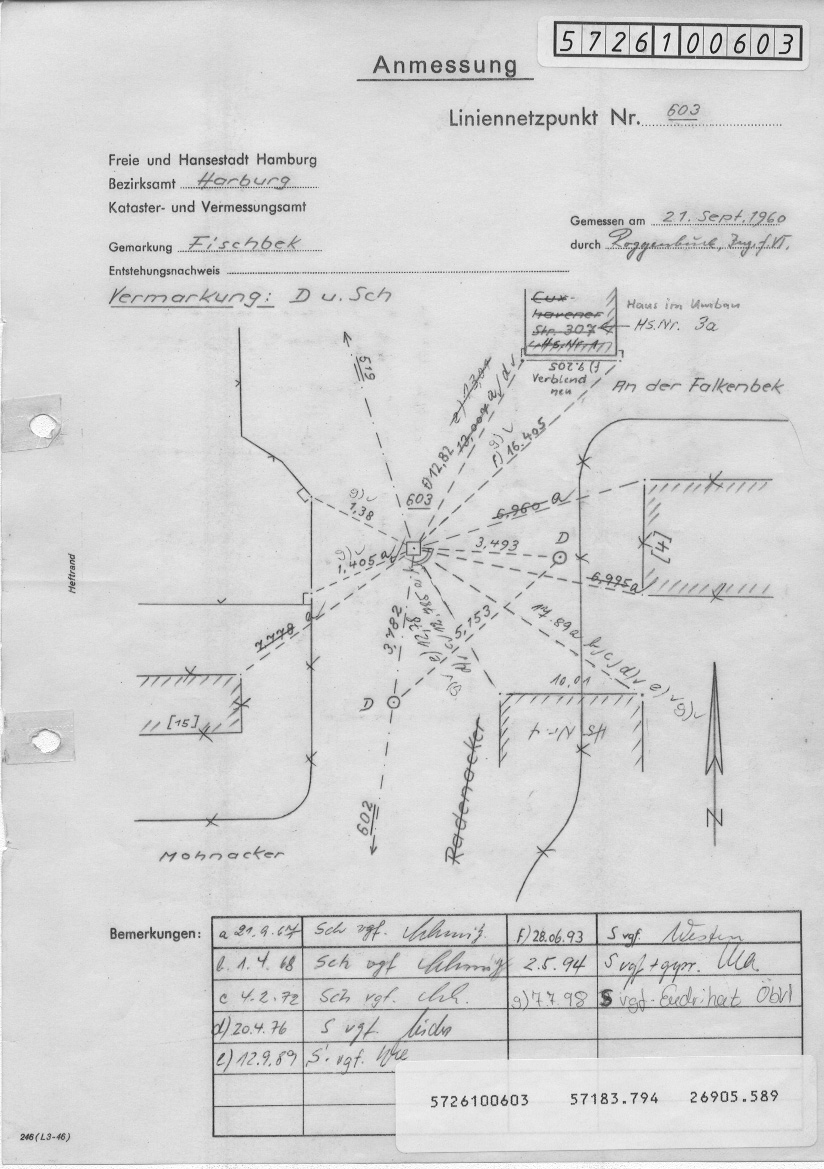 5726100603
Anmessung
Liniennetzpunkt Nr. 603
Freie und Hansestadt Hamburg
Bezirksamt Harburg
Kataster- und Vermessungsamt
Gemessen am 21. Sept. 1960
Gemarkung Fischbek
durch Roggenbuck, Ing. f. VT.
Entstehungsnachweis
Vermarkung: D u. Sch
Cux-
havener
Str. 307
Hs. Nr. 1
Haus im Umbau
HS.Nr. 3a
f) 9.205
Verblend
neu
An der Falkenbek
619
12,82
f) 16.405
g)
603
g)
1,38
6,960 a
g)
1,405 a
3,493
D
[4]
6,995 a
7,778 a
3,782
5,153
17.89a b,c,d) e) g)
10,01
D
[15]
HS Nr. 4
Heftrand
Radenacker
602
N
Mohnacker
Bemerkungen:
a 21.9.67 Sch vgf. f) 28.06.93 S vgf.
b. 1.4.68 Sch vgf 2.5.94 S vgf + gepr.
c 4.2.72 Sch vgf. g) 7.7.98 S vgf. ÖbVI
d) 20.4.76 S vgf.
e) 12.9.89 S. vgf.
5726100603 57183.794 26905.589
246 (L3-46)